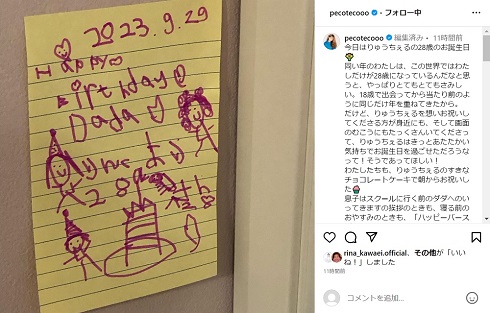 2023.9.29
Happy
Birthday
Dada
28
pecotecooo・フォロー中
pecotecooo 編集済み・11時間前
今日はりゅうちぇるの28歳のお誕生日
同い年のわたしは、この世界ではわたしだけが28歳になっているんだなと思うと、やっぱりとてもとてもさみしい。18歳で出会ってから当たり前のように同じだけ年を重ねてきたから。
だけど、りゅうちぇるを想いお祝いしてくださる方が身近にも、そして画面のむこうにもたっくさんいてくださって、りゅうちぇるはきっとあたたかい気持ちでお誕生日を過ごせただろうなって！そうであってほしい！
わたしたちも、りゅうちぇるのすきなチョコレートケーキで朝からお祝いした
息子はスクールに行く前のダダへのいってきますの挨拶のときも、寝る前のおやすみのときも、「ハッピーバース
rina_kawaei.official、その他が「いいね！」しました
11時間前
コメントを追加...